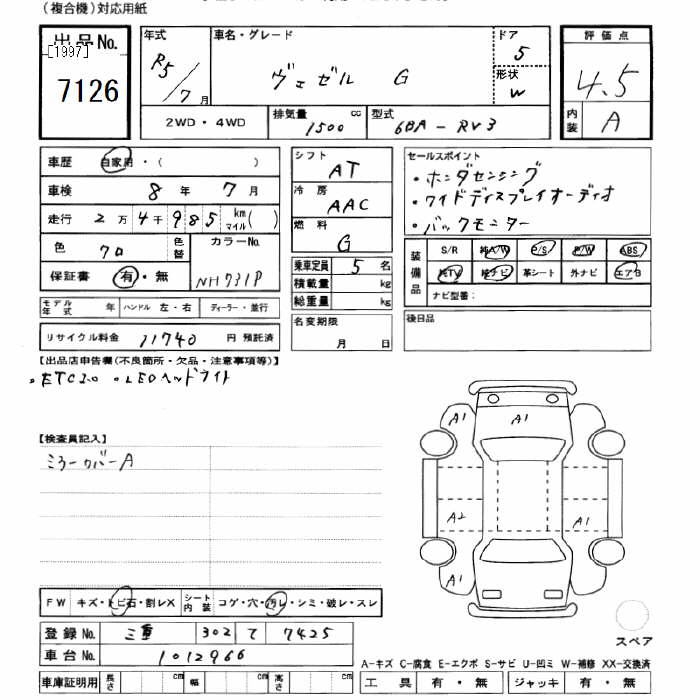 (複合機)対応用紙
出品No. [1997] 7126
年式 R5/7月
車名・グレード ヴェゼル G
ドア 5
形状 W
評価点 4.5
内装 A
2WD・4WD
排気量 1500 cc
型式 6BA-RV3
車歴 自家用・( )
車検 8年 7月
走行 2万4千985 km マイル( )
色 クロ 色替
カラーNo. NH731P
保証書 有・無
モデル年式 年 ハンドル 左・右 ディーラー・並行
リサイクル料金 11740 円 預託済
シフト AT
冷房 AAC
燃料 G
乗車定員 5名
積載量 kg
総重量 kg
名変期限 月 日
セールスポイント
・ホンダセンシング
・ワイドディスプレイオーディオ
・バックモニター
装備品 S/R 純A/W P/S P/W ABS
純TV 純ナビ 革シート 外ナビ エアB
ナビ型番:
後日品
【出品店申告欄(不良箇所・欠品・注意事項等)】
・ETC2.0 ・LEDヘッドライト
【検査員記入】
ミラーカバーA
A1 A1
A2 A1
A1
FW キズ・トビ石・割レX シート内装 コゲ・穴・汚レ・シミ・破レ・スレ
登録No. 三重 302 て 7425
車台No. 1012966
車庫証明用 長さ cm 幅 cm 高さ cm
スペア
A-キズ C-腐食 E-エクボ S-サビ U-凹ミ W-補修 XX-交換済
工具 有・無 ジャッキ 有・無